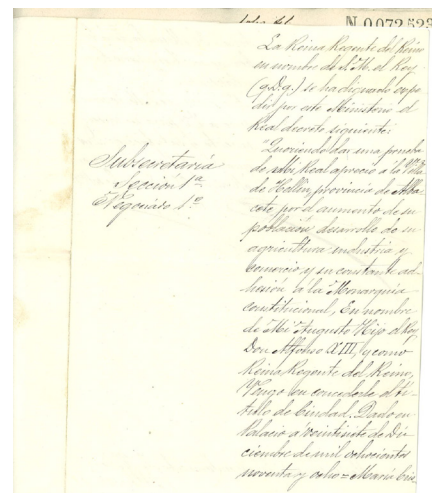 N.0.072.523
Subsecretaría
Sección 1ª
Negociado 1º
La Reina Regente del Reino
en nombre de S. M. el Rey
(q. D. g.) se ha dignado expe-
dir por este Ministerio el
Real decreto siguiente:
"Queriendo dar una prueba
de Mi Real aprecio a la Villa
de Hellín, provincia de Alba-
cete, por el aumento de su
población, desarrollo de su
agricultura, industria y
comercio y su constante ad-
hesión á la Monarquía
constitucional, En nombre
de Mi Augusto Hijo el Rey
Don Alfonso XIII, y como
Reina Regente del Reino,
Vengo en concederle el tí-
tulo de Ciudad. Dado en
Palacio a veintisiete de Di-
ciembre de mil ochocientos
noventa y ocho = María Cris